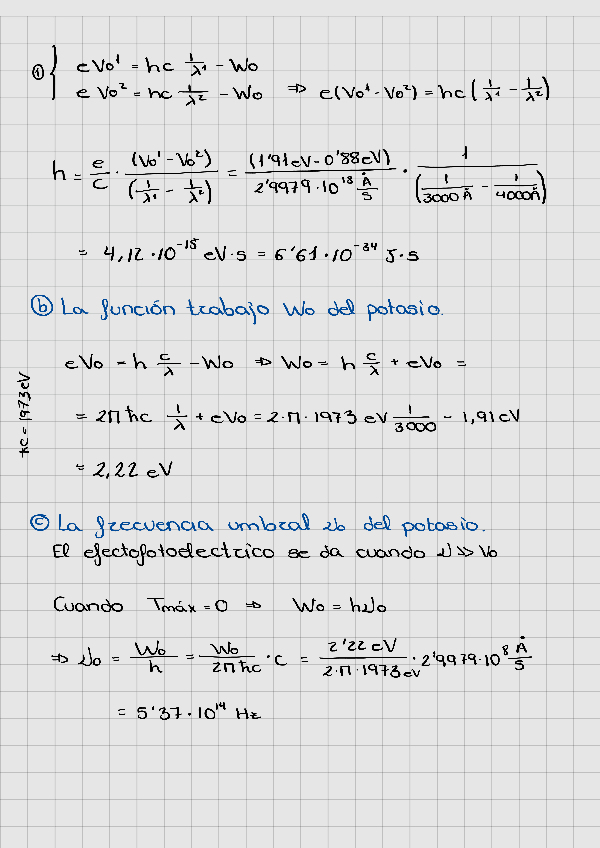 ① { eV₀¹ = hc 1/λ¹ - W₀
e V₀² = hc 1/λ² - W₀ ⇒ e(V₀¹ - V₀²) = hc (1/λ¹ - 1/λ²)
h = e/c · (V₀¹ - V₀²)/(1/λ¹ - 1/λ²) = (1'91eV - 0'88eV)/(2'9979 · 10¹⁸ Å/s) · 1/(1/3000Å - 1/4000Å)
= 4,12 · 10⁻¹⁵ eV·s = 6'61 · 10⁻³⁴ J·s
ⓑ La función trabajo W₀ del potasio.
eV₀ = h c/λ - W₀ ⇒ W₀ = h c/λ + eV₀ =
ħc = 1973 eV
= 2π ħc 1/λ + eV₀ = 2·π·1973 eV 1/3000 - 1,91 eV
= 2,22 eV
ⓒ La frecuencia umbral ν₀ del potasio.
El efectofotoelectrico se da cuando ν >> ν₀
Cuando Tmáx = 0 ⇒ W₀ = hν₀
⇒ ν₀ = W₀/h = W₀/2πħc · c = 2'22 eV/2·π·1973 eV · 2'9979·10⁸ Å/s
= 5'37 · 10¹⁴ Hz